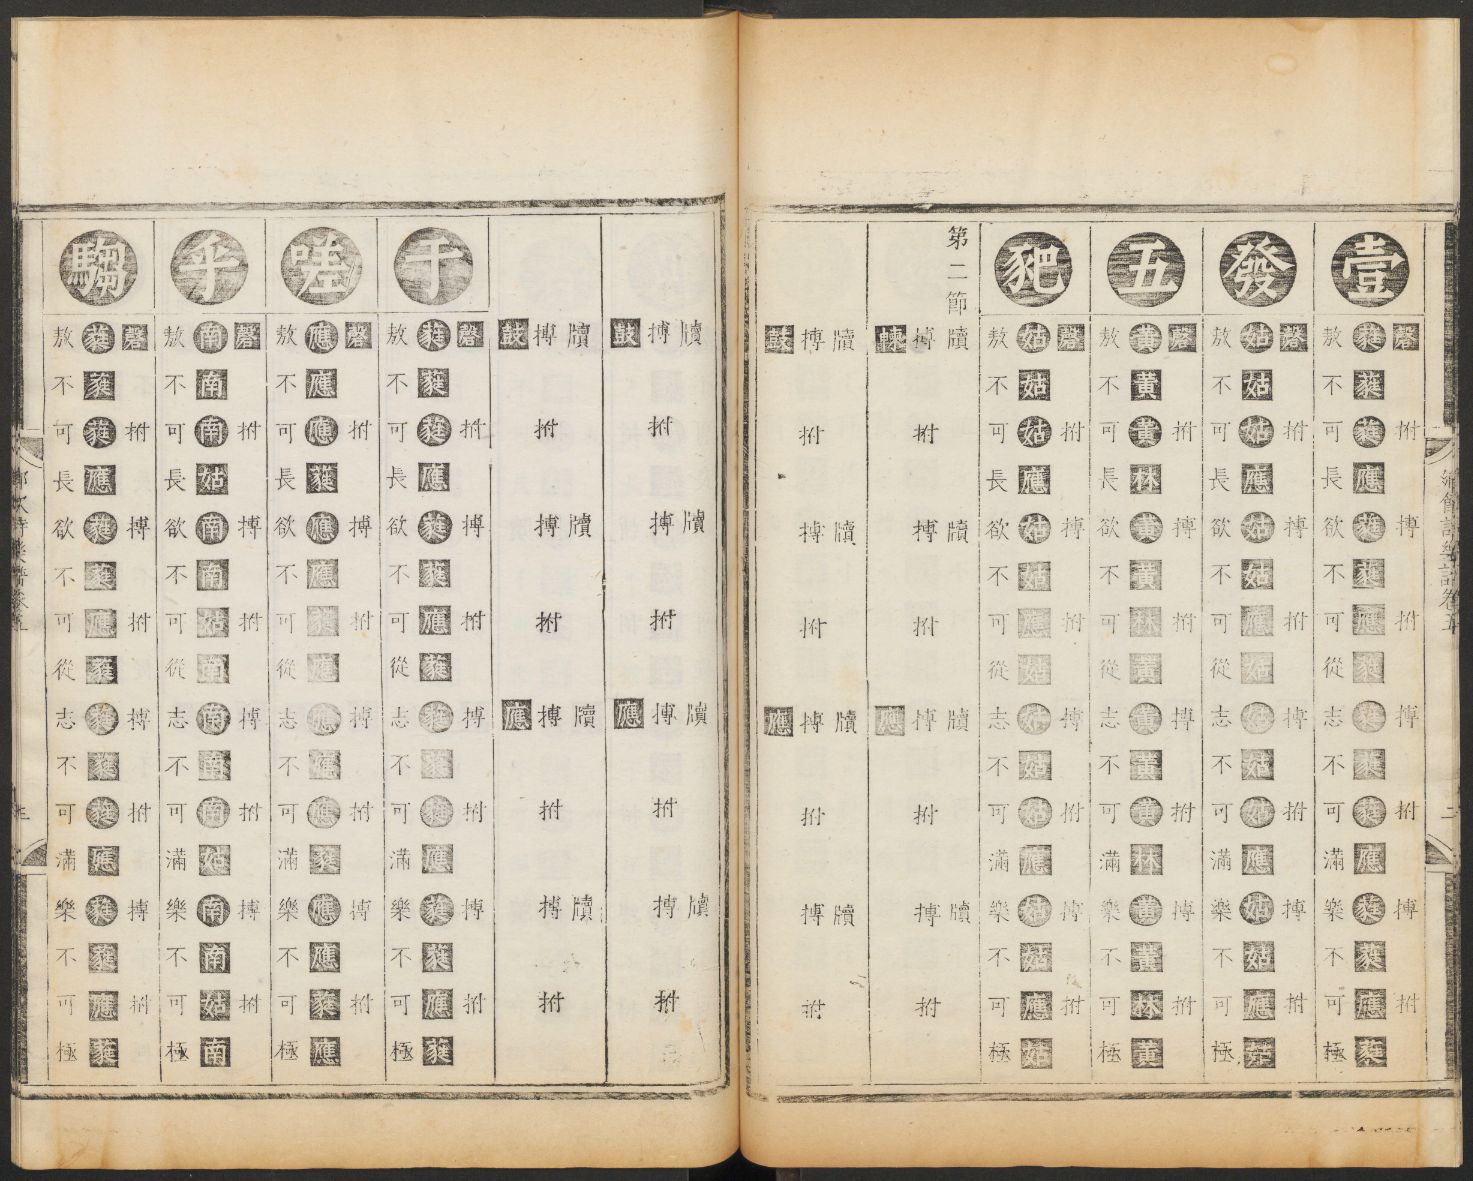 鄉飲詩樂譜卷五 二
壹
磬拊搏拊搏拊搏拊
蕤蕤蕤應蕤蕤應蕤蕤蕤蕤應蕤蕤應蕤
敖不可長欲不可從志不可滿樂不可極
發
磬拊搏拊搏拊搏拊
姑姑姑應姑姑應姑姑姑姑應姑姑應姑
敖不可長欲不可從志不可滿樂不可極
五
磬拊搏拊搏拊搏拊
黃黃黃林黃黃林黃黃黃黃林黃黃林黃
敖不可長欲不可從志不可滿樂不可極
豝
磬拊搏拊搏拊搏拊
姑姑姑應姑姑應姑姑姑姑應姑姑應姑
敖不可長欲不可從志不可滿樂不可極
第二節
牘牘牘牘
搏拊搏拊搏拊搏拊
朄應
牘牘牘牘
搏拊搏拊搏拊搏拊
鼓應
牘牘牘牘
搏拊搏拊搏拊搏拊
鼓應
牘牘牘牘
搏拊搏拊搏拊搏拊
鼓應
于
磬拊搏拊搏拊搏拊
蕤蕤蕤應蕤蕤應蕤蕤蕤蕤應蕤蕤應蕤
敖不可長欲不可從志不可滿樂不可極
嗟
磬拊搏拊搏拊搏拊
應應應蕤應應蕤應應應應蕤應應蕤應
敖不可長欲不可從志不可滿樂不可極
乎
磬拊搏拊搏拊搏拊
南南南姑南南姑南南南南姑南南姑南
敖不可長欲不可從志不可滿樂不可極
騶
磬拊搏拊搏拊搏拊
蕤蕤蕤應蕤蕤應蕤蕤蕤蕤應蕤蕤應蕤
敖不可長欲不可從志不可滿樂不可極
鄉飲詩樂譜卷五 三